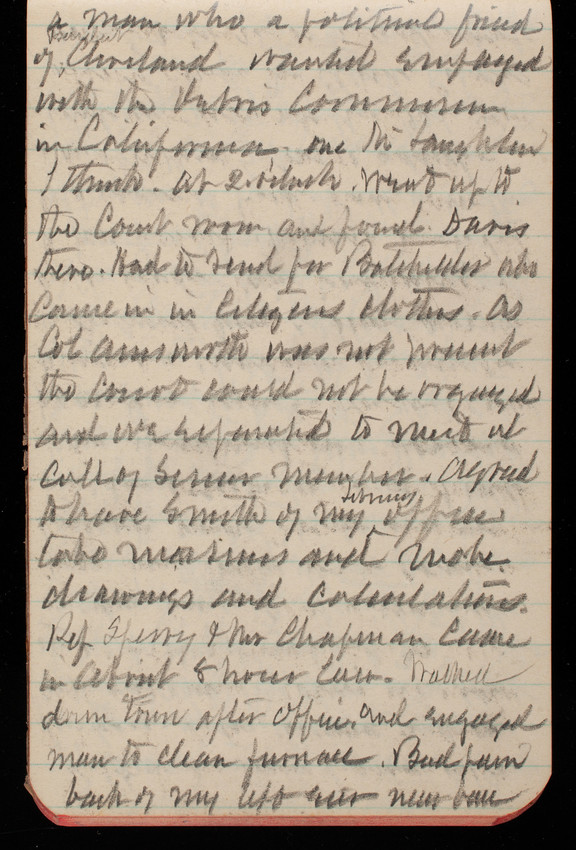 a man who a political friend
of President Cleveland wanted employed
with the Debris Commission
in California one McLaughlin
I think. at 2 o'clock. Went up to
the Court room and found Davis
there. Had to send for Batchelder who
came in in Citizens clothes. As
Col Ainsworth was not present
the Court could not be organized
and we separated to meet at
call of Senior member. Agreed
to have Smith of my office
take measures and make
drawings and calculations.
Rep Sperry & Mr Chapman came
in about 8 hour Law. Walked
down town after office. and engaged
man to clean furnace. Bad pain
back of my left ear near base